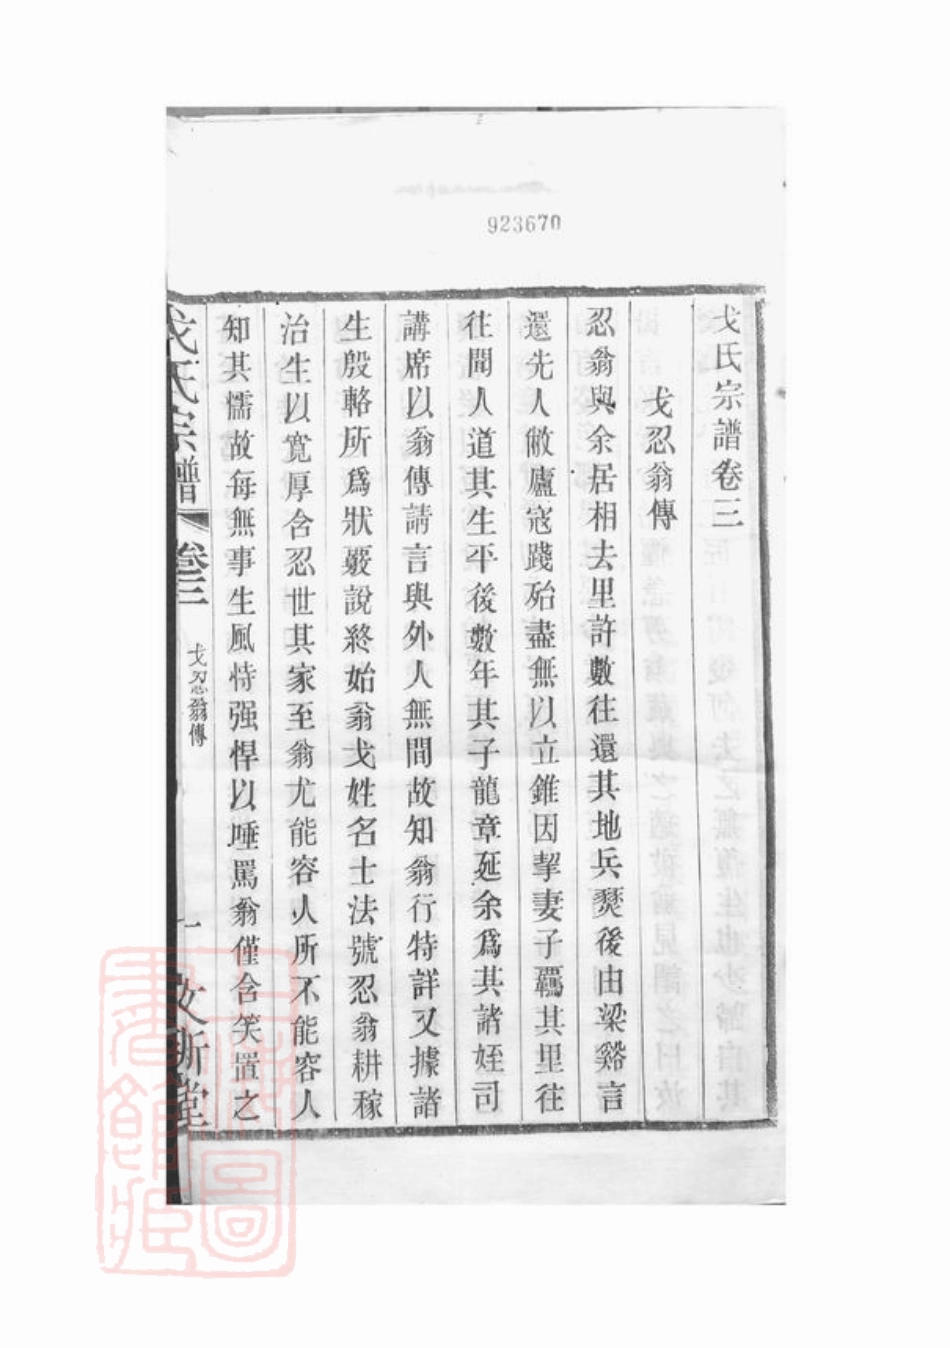 923670
戈氏宗譜卷三
戈忍翁傳
忍翁與余居相去里許數往還其地兵燹後由梁谿言
還先人敝廬寇踐殆盡無以立錐因挈妻子羈其里往
往聞人道其生平後數年其子龍章延余爲其諸姪司
講席以翁傳請言與外人無間故知翁行特詳又據諸
生殷輅所爲狀覈說終始翁戈姓名士法號忍翁耕稼
治生以寬厚含忍世其家至翁尤能容人所不能容人
知其懦故每無事生風恃强悍以唾罵翁僅含笑置之
戈氏宗譜
卷三
戈忍翁傳
一